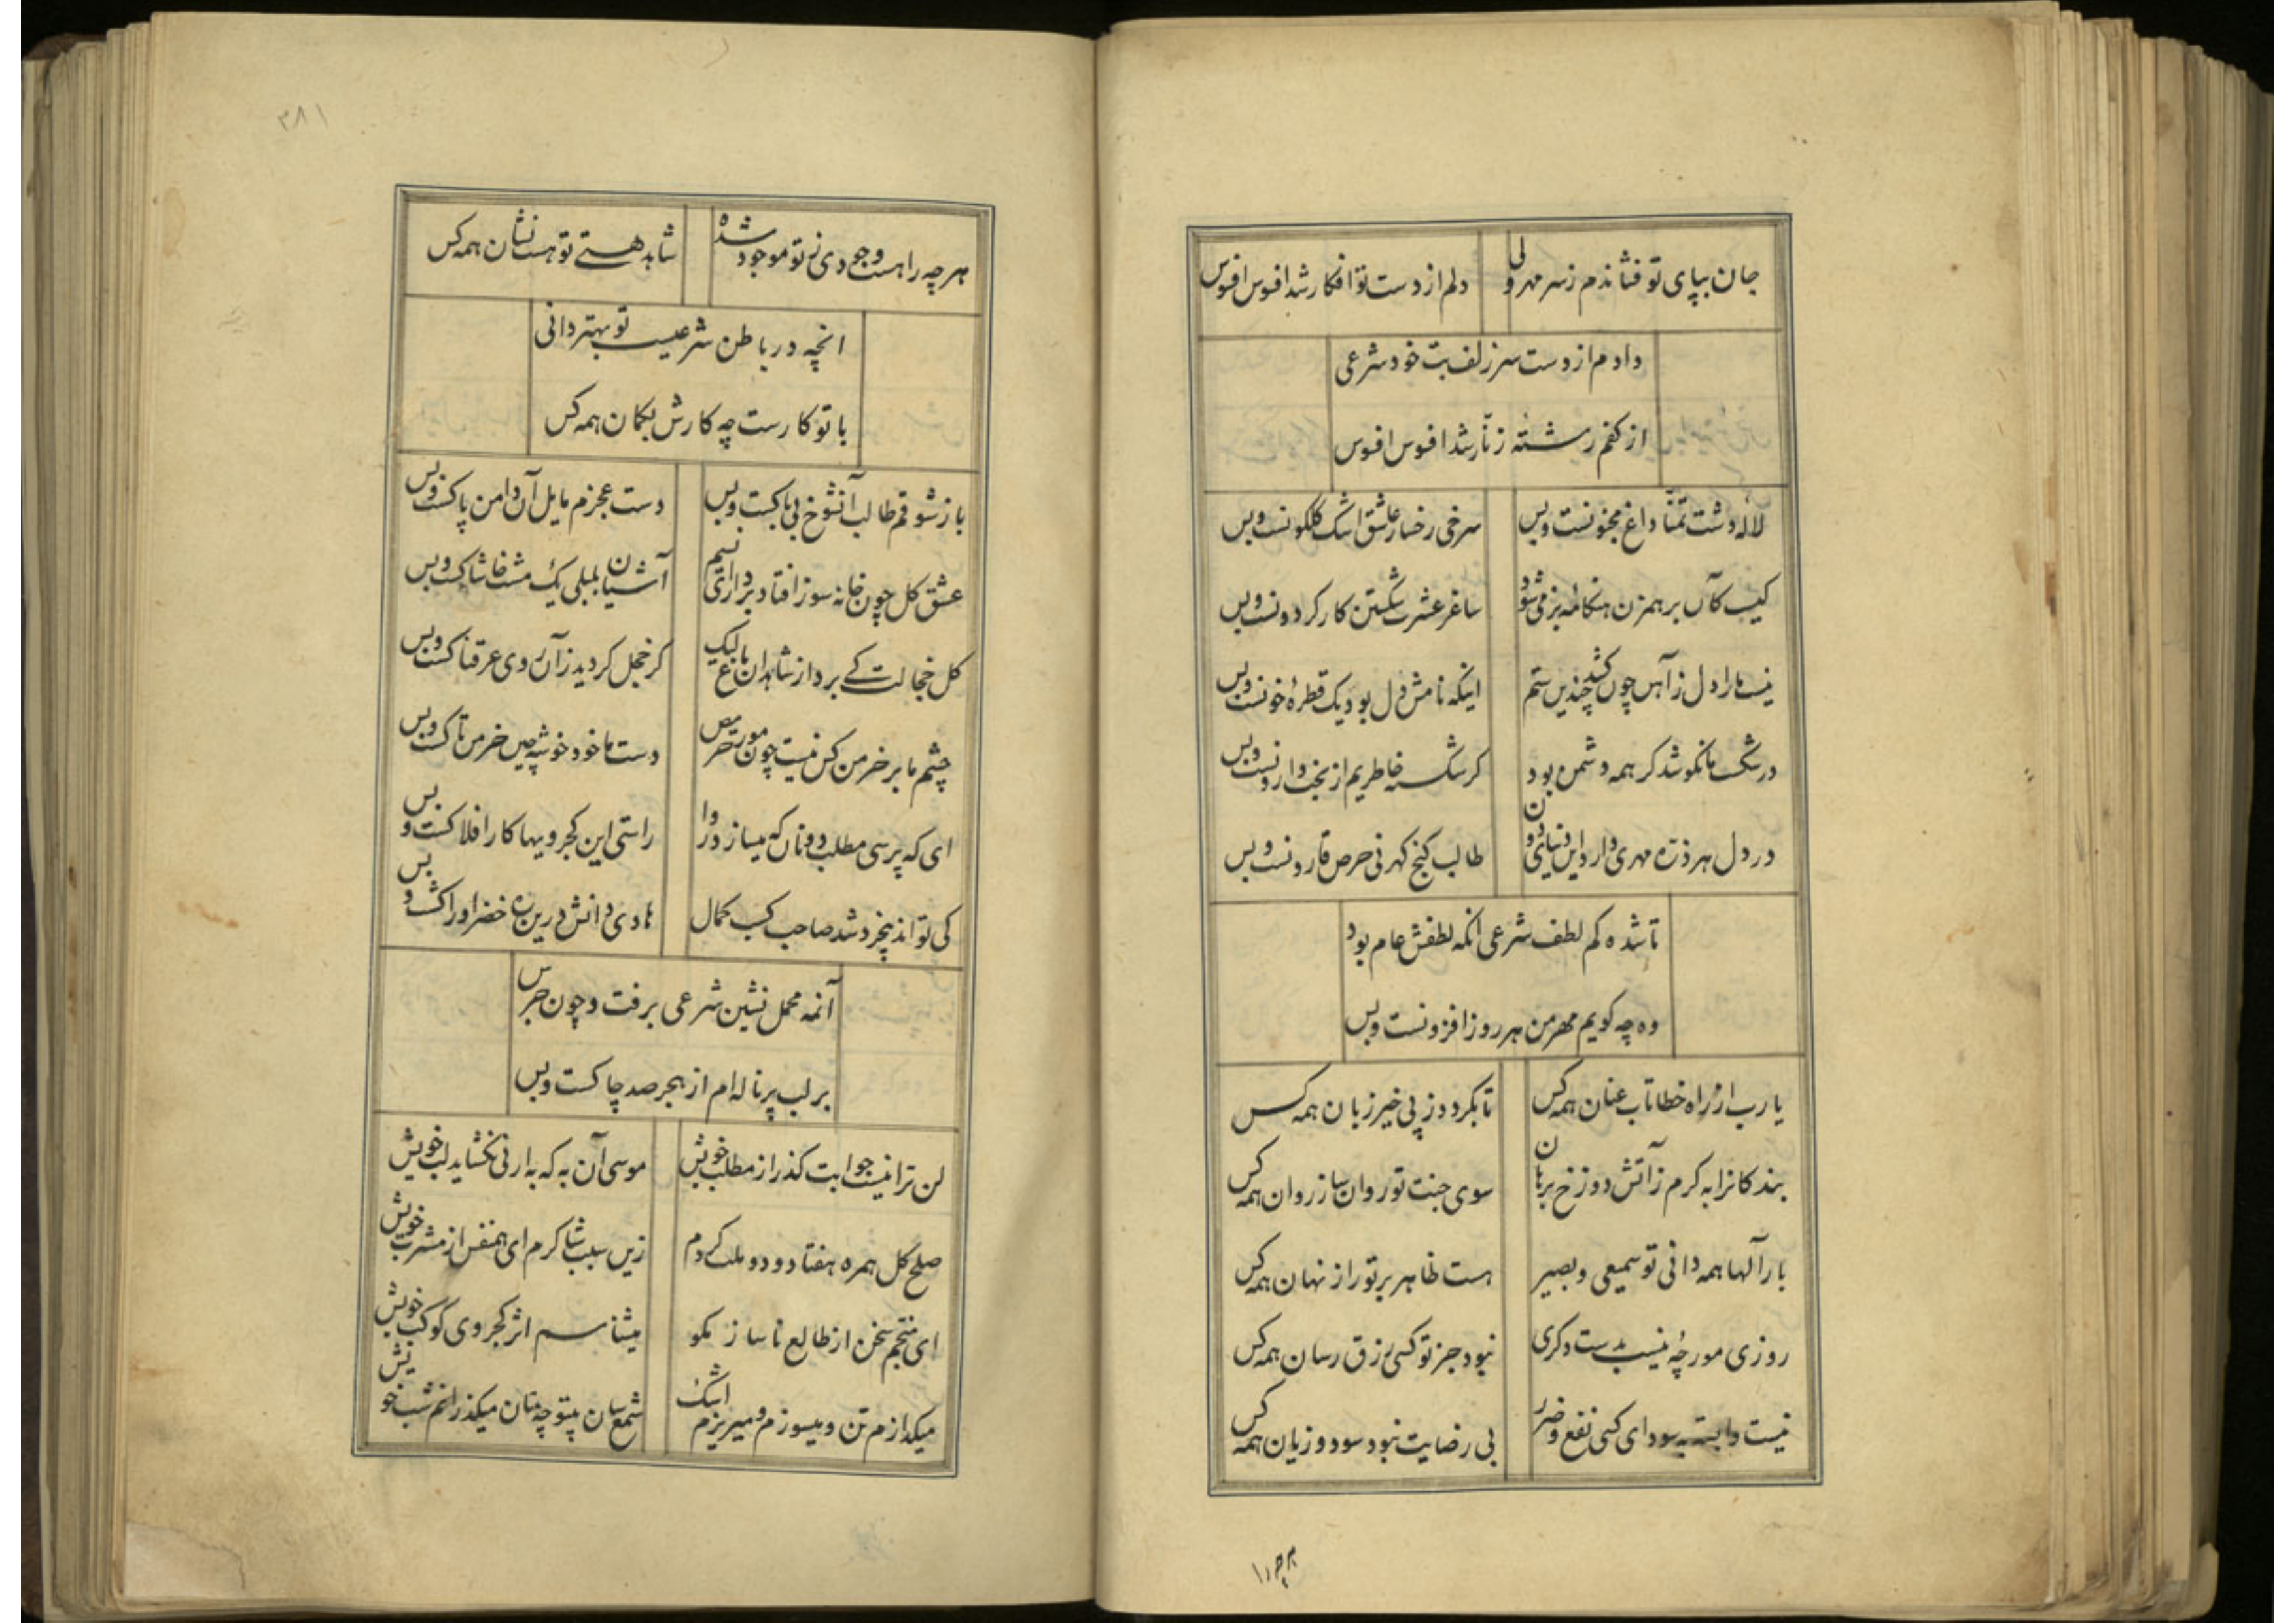 جان بپای تو فشاندم ز سر مهر ولی
دلم از دست تو افکار شد افسوس افسوس
دادم از دست سر زلف بت خود شرعی
از کفم رشته زنّار شد افسوس افسوس
لالهٔ دشت تمنّا داغ مجنونست وبس
سرخی رخسار عاشق اشک گلگونست وبس
کیست کآن برهمزن هنکامهٔ بزمی شود
ساغر عشرت شکستن کار کردونست وبس
نیست مارا دل ز آهن چون کشد چندین ستم
اینکه نامش دل بود یک قطرهٔ خونست وبس
در شکست ما نکوشد کر همه دشمن بود
کر شکسته خاطریم از بخت وارونست وبس
در دل هر ذره مهری دارد این دنیای دون
طالب کنج کهر نی حرص قارونست وبس
تا شده کم لطف شرعی آنکه لطفش عام بود
وه چه کویم مهر من هر روز افزونست وبس
یارب از راه خطا تاب عنان همه کس
تا بکردد ز پی خیر زبان همه کس
بندکانرا به کرم ز آتش دوزخ برهان
سوی جنت تو روان ساز روان همه کس
بار آلها همه دانی تو سمیعی وبصیر
هست ظاهر بر تو راز نهان همه کس
روزی مورچهٔ نیست بدست دکری
نبود جز تو کسی رزق رسان همه کس
نیست وابسته بسودای کسی نفع وضرر
بی رضایت نبود سود و زیان همه کس
۱۱۴۳
۳۸۱
هر چه را هست وجودی ز تو موجود شده
شاهد هستی تو هست نشان همه کس
انچه در باطن شرعیست تو بهتر دانی
با تو کارست چه کارش بکمان همه کس
باز شوقم طالب آنشوخ بی باکست وبس
دست عجزم مایل آن دامن پاکست وبس
عشق کل چون خانه سوز افتاد برداراتی نسیم
آشیان بلبلی یک مشت خاشاکست وبس
کل خجالت کی برد از شاهدان باغ لیک
کر خجل کردید زآن روی عرقناکست وبس
چشم ما بر خرمن کس نیست چون مور حریص
دست ما خود خوشه چین خرمن تاکست وبس
ای که پرسی مطلب دونان که میسازد روا
راستی این کجرویها کار افلاکست وبس
کی تواند بیخرد شد صاحب کسب کمال
هادی دانش درین ره خضر ادراکست وبس
آنمه محمل نشین شرعی برفت و چون جرس
بر لب پر ناله ام از هجر صد چاکست وبس
لن ترانیست جوابت کذر از مطلب خویش
موسی آن به که به ارنی نکشاید لب خویش
صلح کل همره هفتاد و دو ملت کردم
زین سبب شاکرم ای همنفس از مشرب خویش
ای منجم سخن از طالع ناساز مکو
میشناسم اثر کجروی کوکب خویش
میکدازم تن و میسوزم و میریزم اشک
شمع سان بیتو چه سان میکذرانم شب خویش